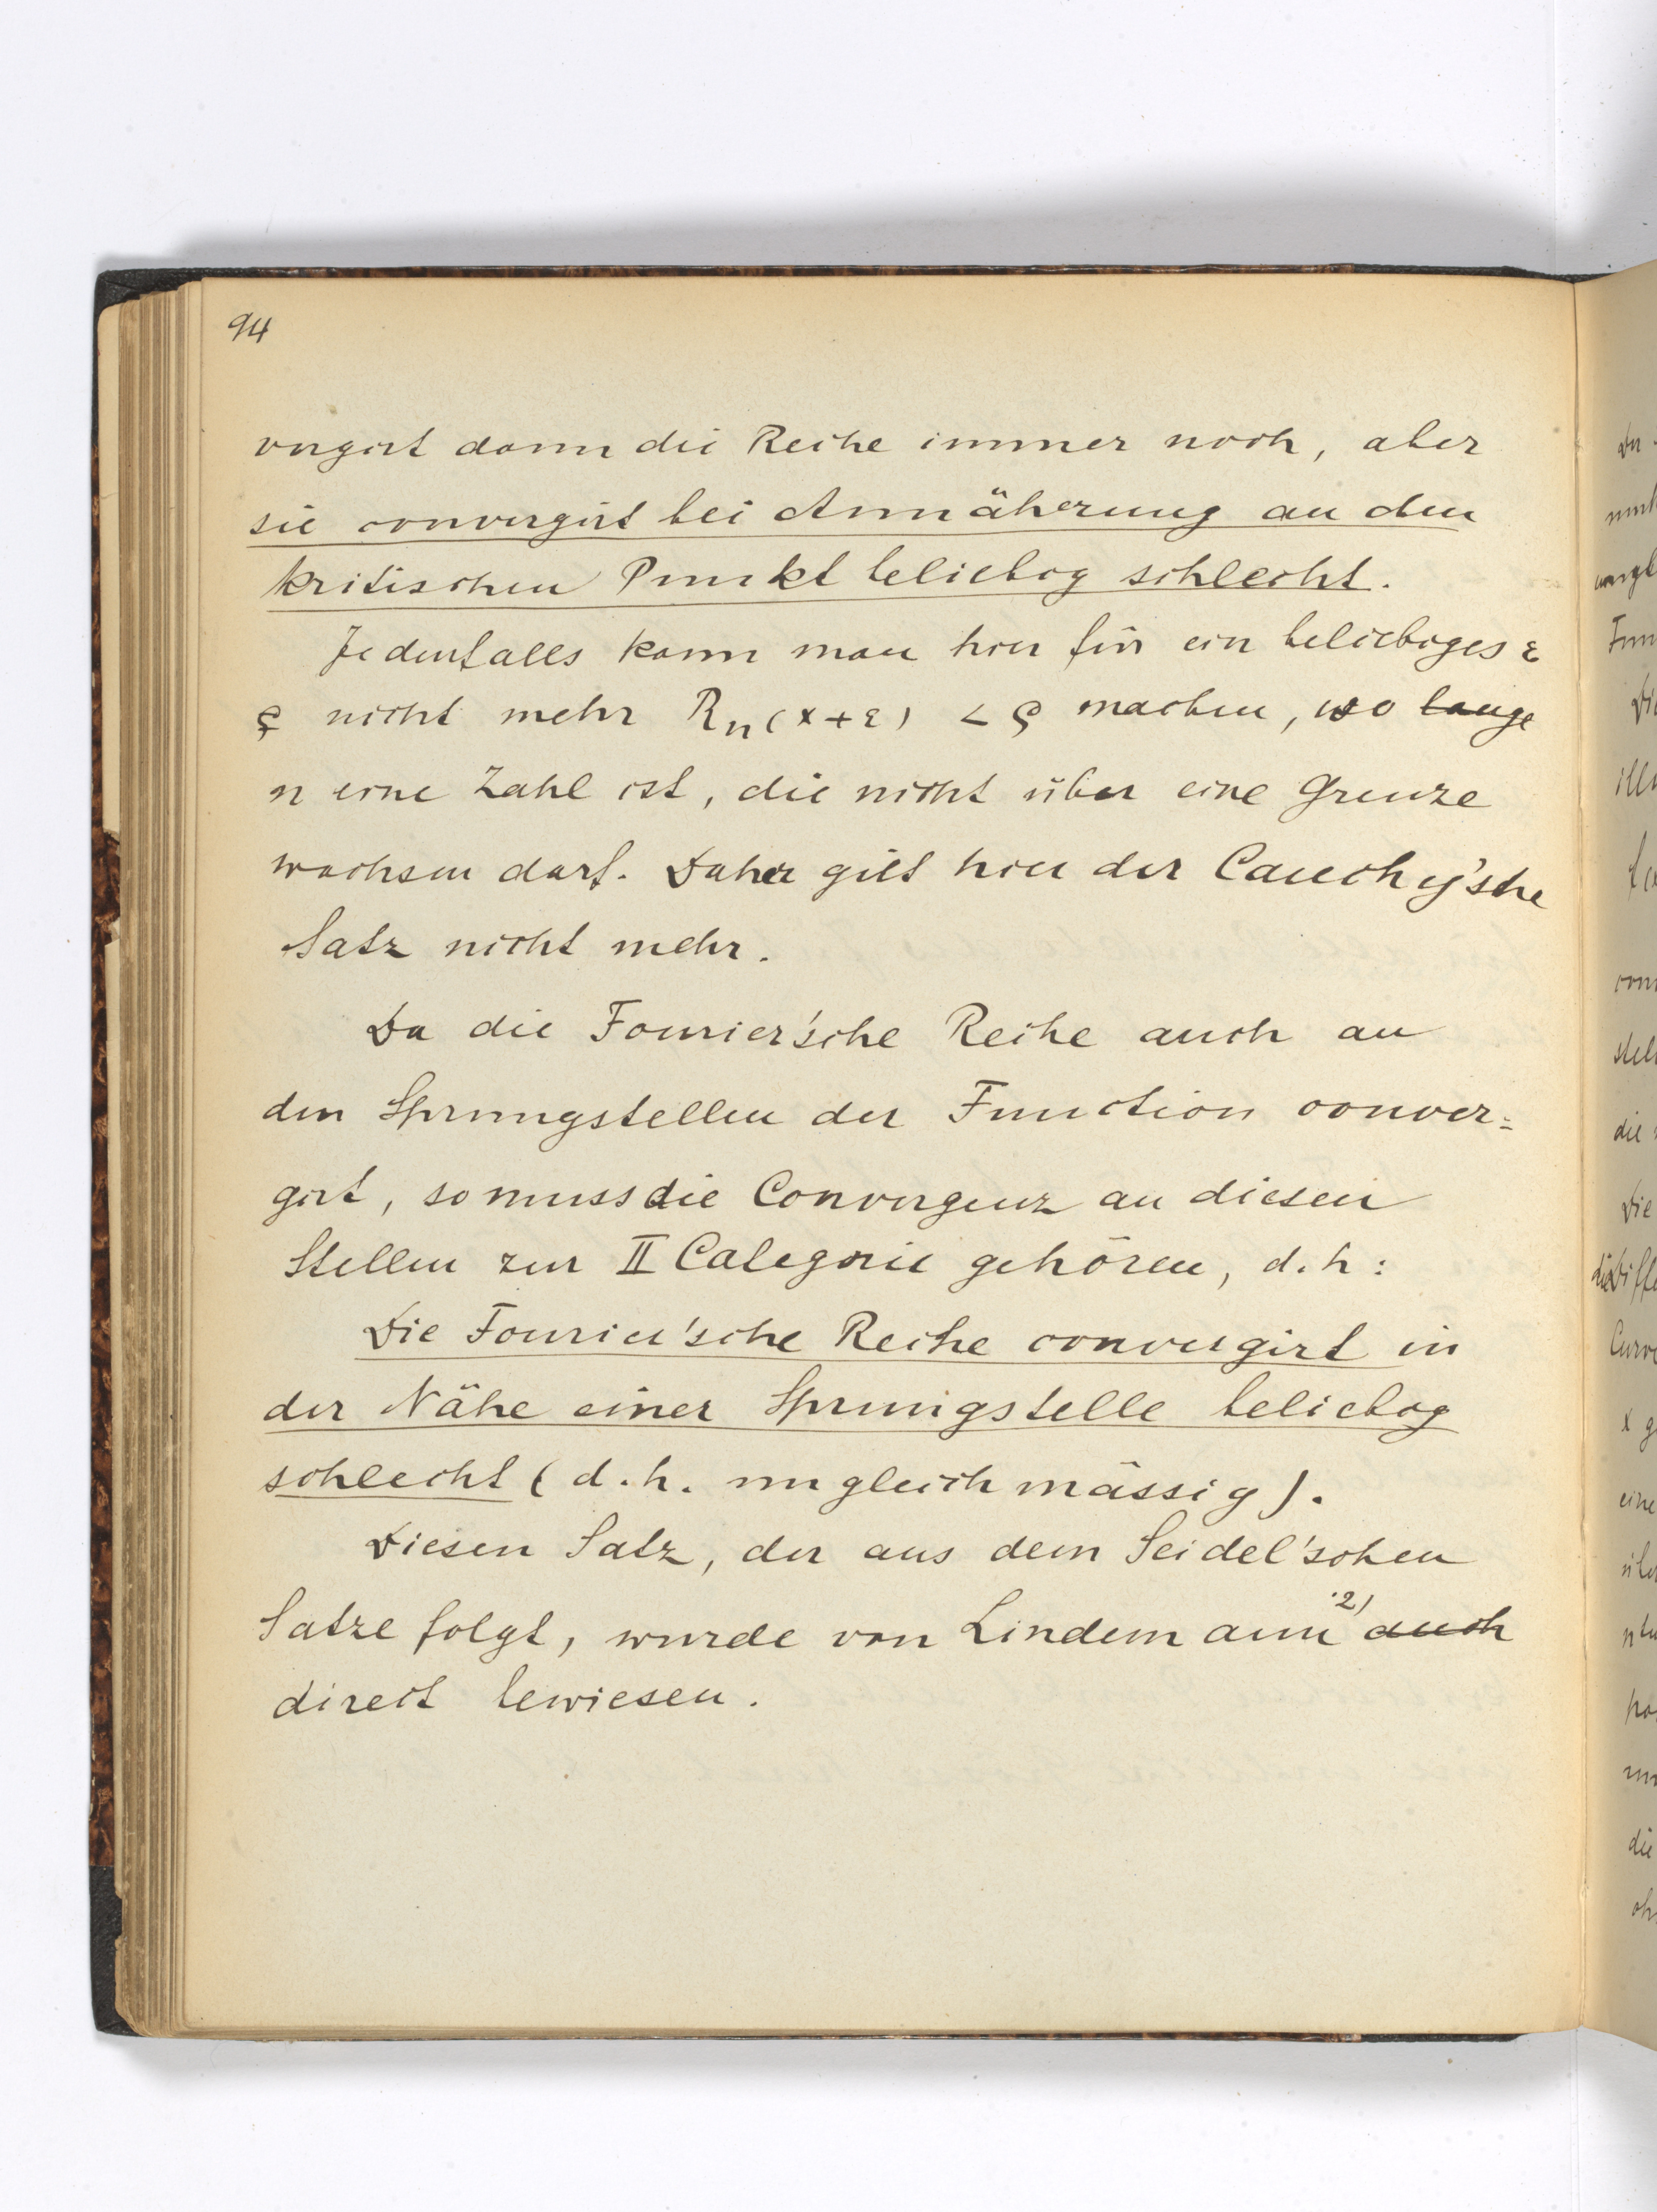 94
vergirt dann die Reihe immer noch, aber
sie convergirt bei Annäherung an den
kritischen Punkt beliebig schlecht.
Jedenfalls kann man hier für ein beliebiges ε
nicht mehr Rn(x+ε) < ϱ machen, wo lange
n eine Zahl ist, die nicht über eine Grenze
wachsen darf. Daher gilt hier der Cauchy'sche
Satz nicht mehr.
Da die Fourier'sche Reihe auch an
den Sprungstellen der Function conver=
girt, so muss die Convergenz an diesen
Stellen zur II Categorie gehören, d.h:
Die Fourier'sche Reihe convergirt in
der Nähe einer Sprungstelle beliebig
schlecht (d.h. ungleichmässig).
Diesen Satz, der aus dem Seidel'schen
Satze folgt, wurde von Lindemann 2) auch
direct bewiesen.